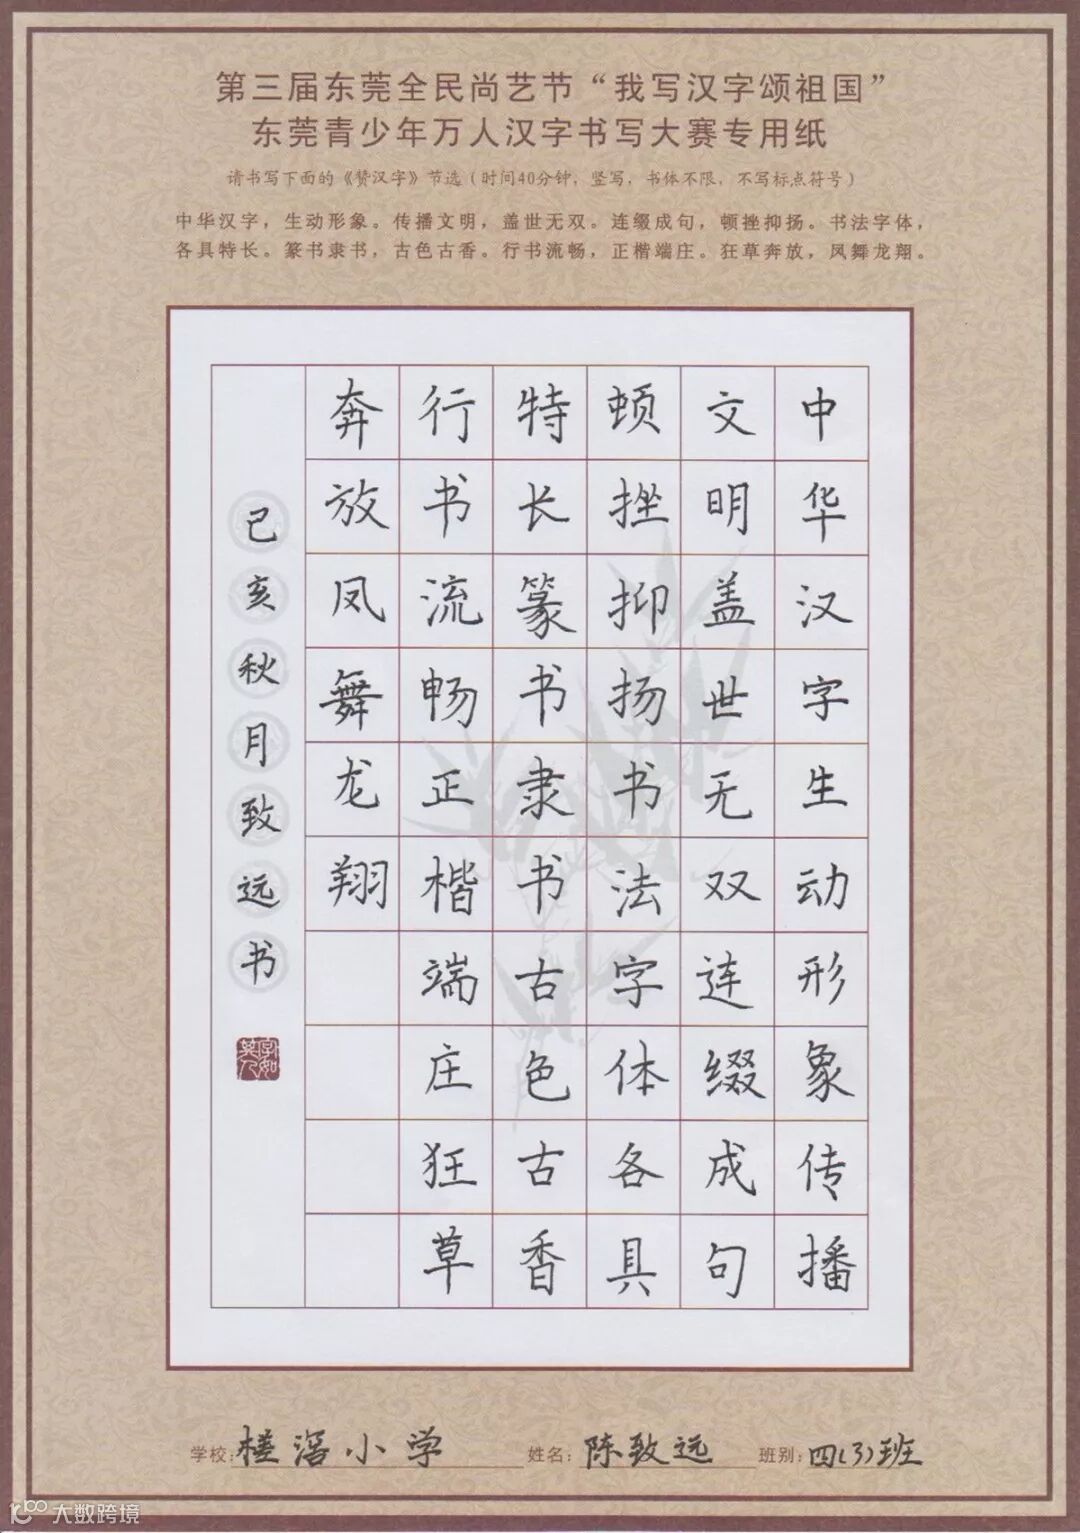 第三届东莞全民尚艺节“我写汉字颂祖国”
东莞青少年万人汉字书写大赛专用纸
请书写下面的《赞汉字》节选（时间40分钟，竖写，书体不限，不写标点符号）
中华汉字，生动形象。传播文明，盖世无双。连缀成句，顿挫抑扬。书法字体，
各具特长。篆书隶书，古色古香。行书流畅，正楷端庄。狂草奔放，凤舞龙翔。
中华汉字生动形象传播
文明盖世无双连缀成句
顿挫抑扬书法字体各具
特长篆书隶书古色古香
行书流畅正楷端庄狂草
奔放凤舞龙翔
己亥秋月致远书
字如其人
学校：槎滘小学 姓名：陈致远 班别：四（3）班
大数跨境